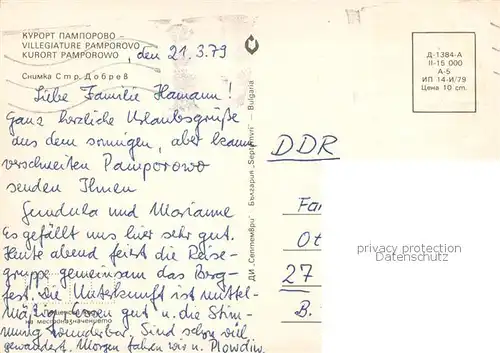 КУРОРТ ПАМПОРОВО -
VILLEGIATURE PAMPOROVO
KURORT PAMPOROWO , den 21.3.79
Снимка Стр. Добрев
Liebe Familie Hamann!
Ganz herzliche Urlaubsgrüße
aus dem sonnigen, aber
verschneiten Pamporowo
senden Ihnen
Gundula und Marianne
Es gefällt uns hier sehr gut.
Heute abend feiert die Reise-
gruppe gemeinsam das Berg-
fest. Die Unterkunft ist mittel-
mäßig, Essen gut u. die Stim-
mung wunderbar. Sind schon viel
gewandert. Morgen fahren wir n. Plowdiw.
на местоназначението
ДИ „Септември" — България „Septemvri" — Bulgaria
Д-1384-А
II-15 000
А-5
ИП 14-И/79
Цена 10 ст.
DDR
Fa
Ot
27
B.
privacy protection
Datenschutz